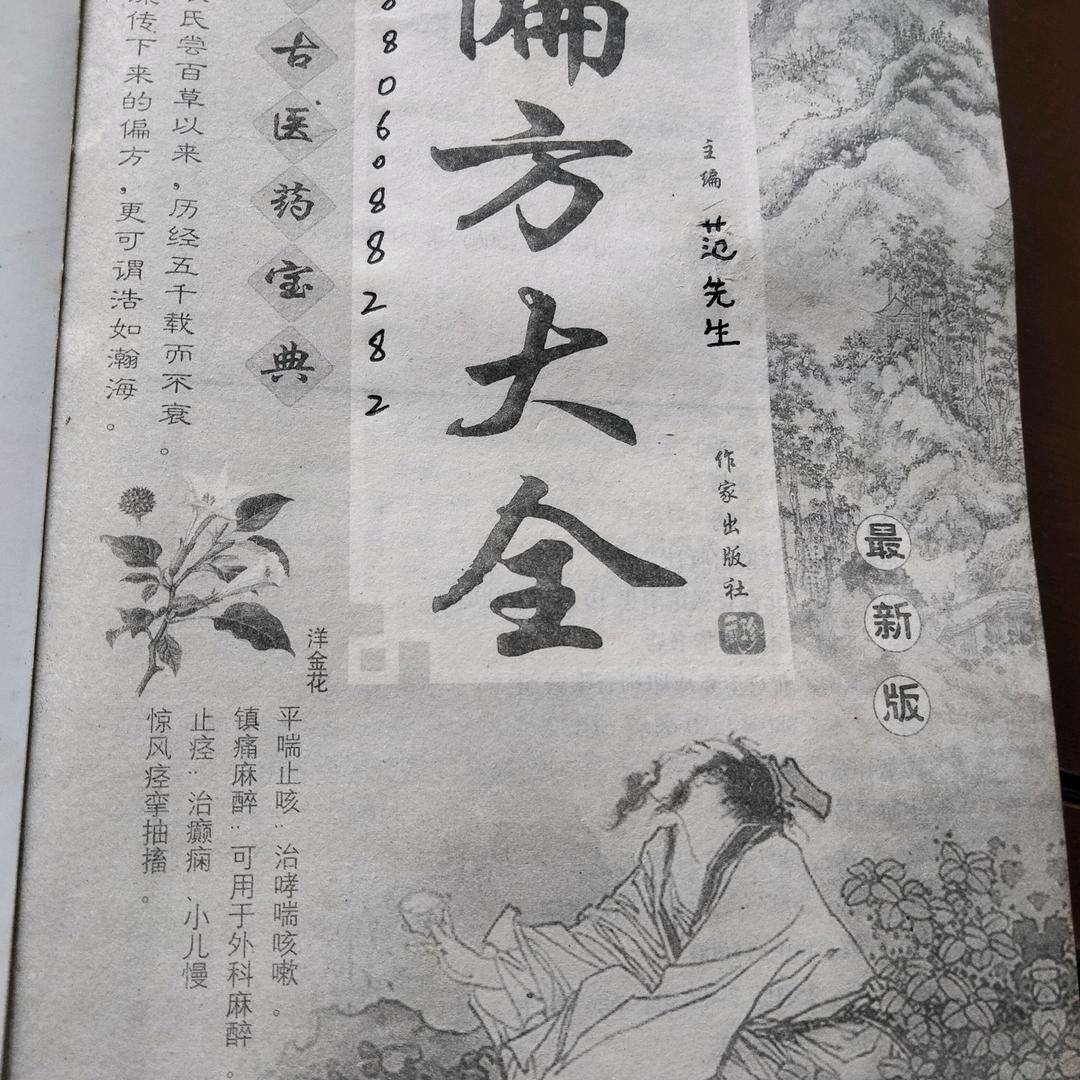 最新版
主编／范先生
作家出版社
偏方大全
8806088282
古医药宝典
氏尝百草以来，历经五千载而不衰。
传下来的偏方，更可谓浩如瀚海。
洋金花
平喘止咳：治哮喘咳嗽。
镇痛麻醉：可用于外科麻醉。
止痉：治癫痫、小儿慢
惊风痉挛抽搐。